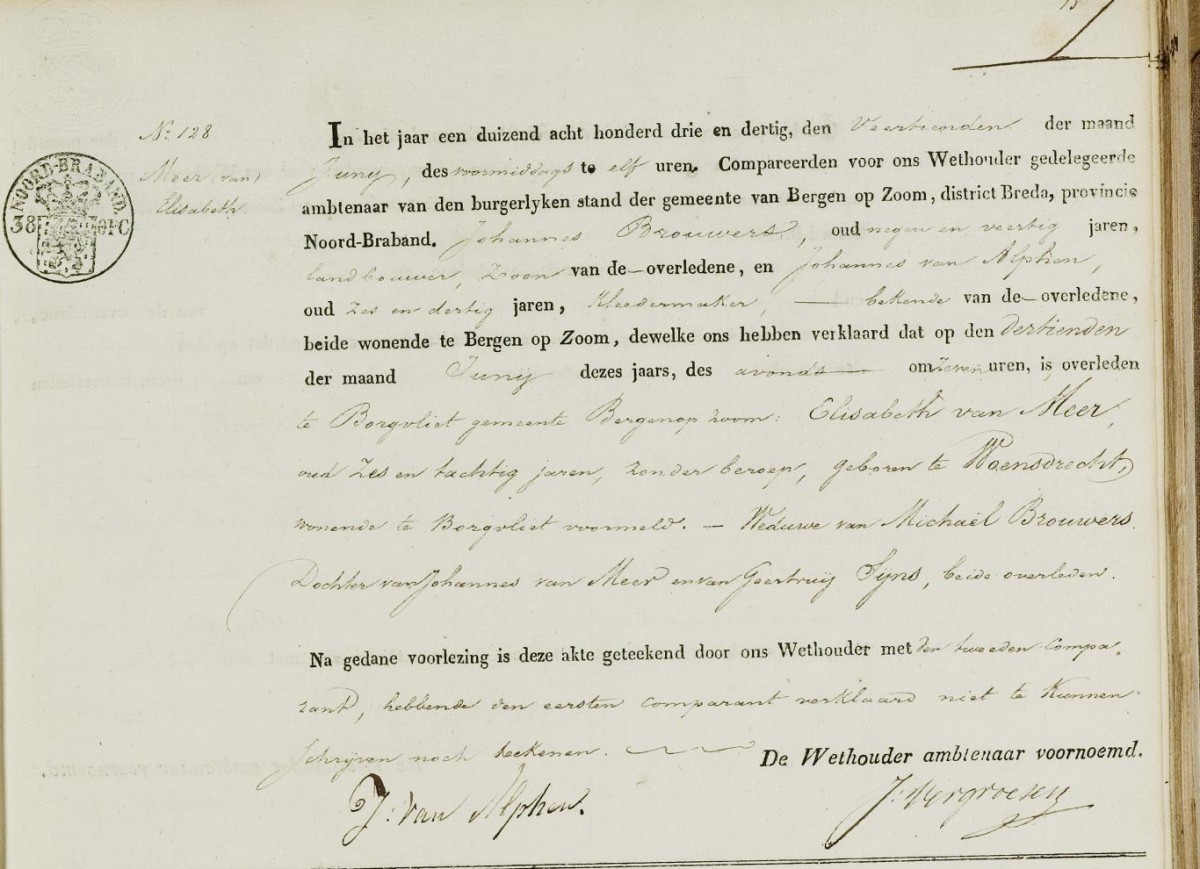 No. 128
Meer, van,
Elisabeth.
NOORD-BRABAND.
38
OPC
In het jaar een duizend acht honderd drie en dertig, den Veertienden der maand
Junij, des voormiddags te elf uren. Compareerden voor ons Wethouder gedelegeerde
ambtenaar van den burgerlyken stand der gemeente van Bergen op Zoom, district Breda, provincie
Noord-Braband. Johannes Brouwers, oud negen en veertig jaren,
landbouwer, Zoon van de overledene, en Johannes van Alphen,
oud zes en dertig jaren, kleedermaker, bekende van de overledene,
beide wonende te Bergen op Zoom, dewelke ons hebben verklaard dat op den dertienden
der maand Junij dezes jaars, des avonds om zeven uren, is overleden
te Borgvliet gemeente Bergen op zoom: Elisabeth van Meer,
oud Zes en tachtig jaren, zonder beroep, geboren te Woensdrecht,
wonende te Borgvliet voormeld. — Weduwe van Michaël Brouwers.
Dochter van Johannes van Meer en van Geertruij Sijns, beide overleden.
Na gedane voorlezing is deze akte geteekend door ons Wethouder met den tweeden compa-
rant, hebbende den eersten comparant verklaard niet te kunnen
schrijven noch teekenen.
De Wethouder ambtenaar voornoemd.
J. van Alphen.